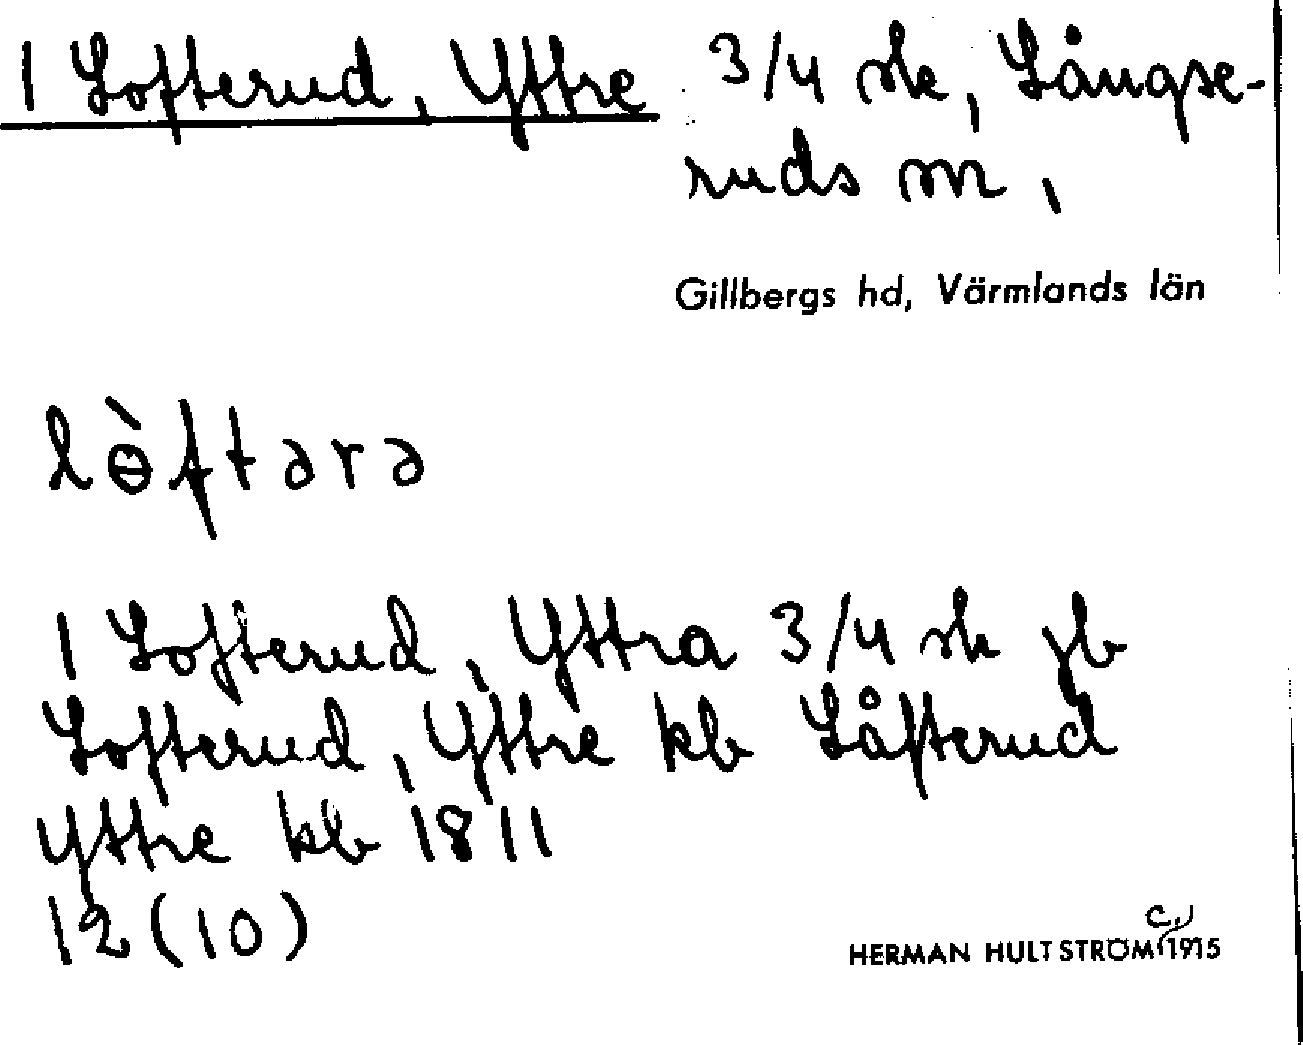 1 Lofterud, Yttre 3/4 sk, Långse-
ruds sn,
Gillbergs hd, Värmlands län
lɵ̀ftərə
1 Lofterud, Yttra 3/4 sk jb
Lofterud, Yttre kb Låfterud
Yttre kb 1811
12 (10)
c,
HERMAN HULTSTRÖM 1915